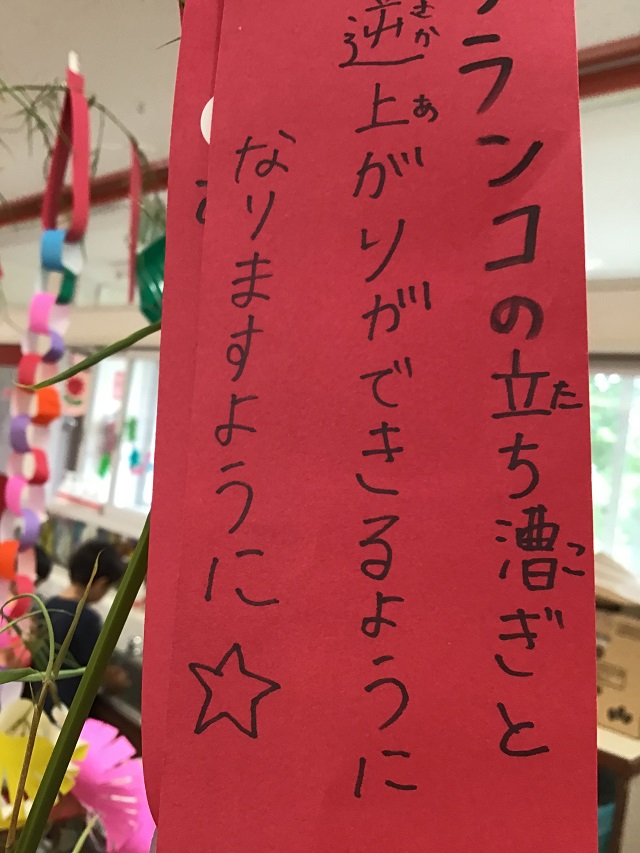 ランコの立ち漕ぎと
逆上がりができるように
なりますように☆